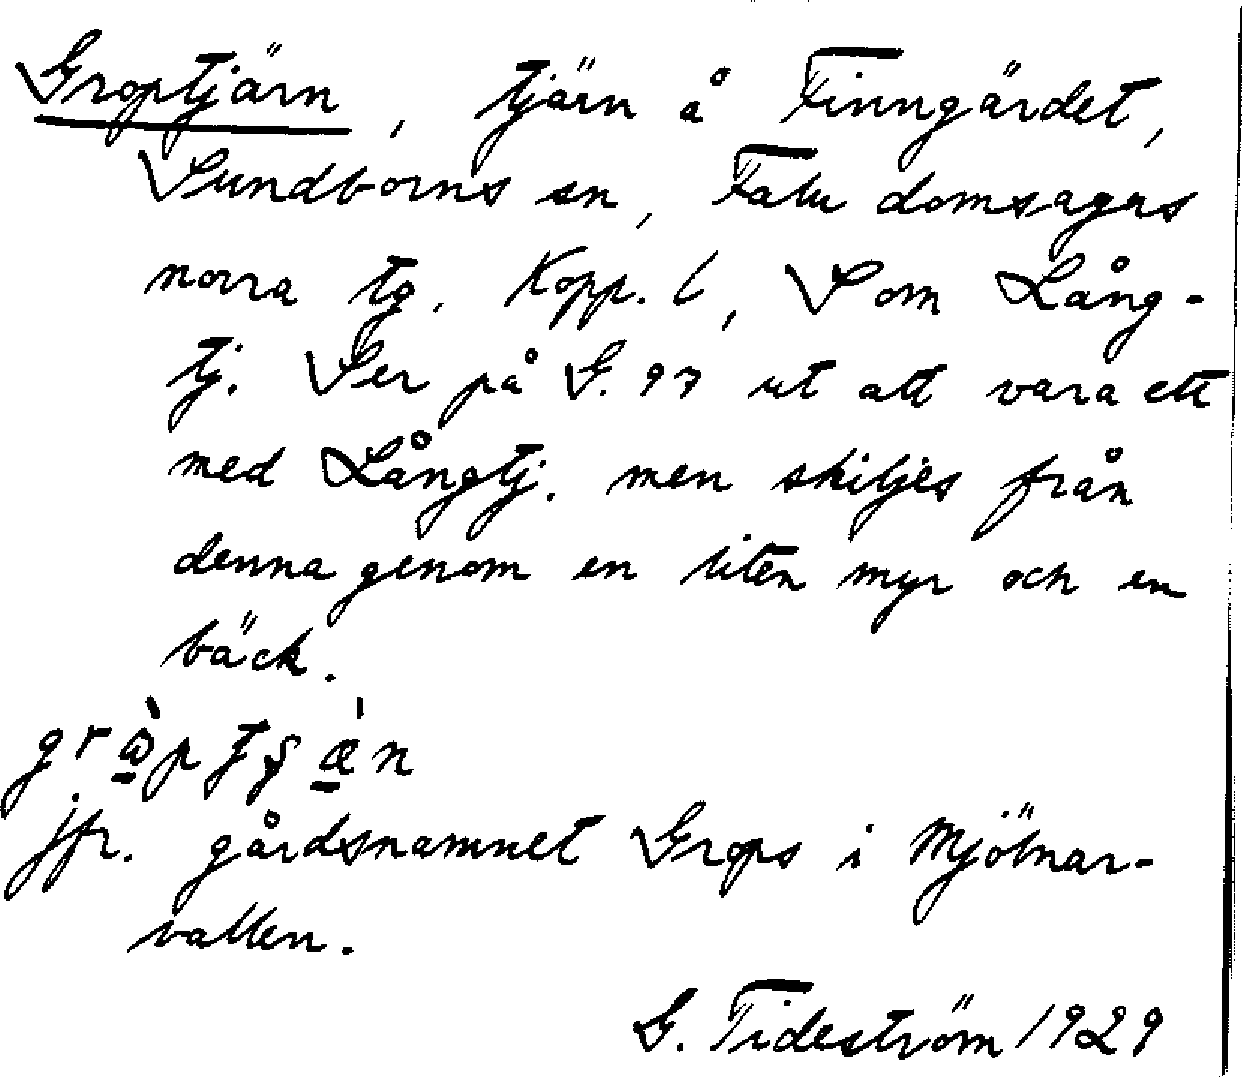 Groptjärn, tjärn å Finngärdet,
Sundborns sn, Falu domsagas
norra tg. Kopp. l, Som Lång-
tj. Ser på G. 97 ut att vara ett
med Långtj. men skiljes från
denna genom en liten myr och en
bäck.
jfr. gårdsnamnet Grops i Mjölnar-
vallen.
G. Tideström 1929